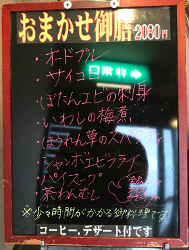 おまかせ御膳 2080円
・オードブル
・サイコロ
・ぼたんエビの刺身
・いわしの梅煮
・ほうれん草の
・ジャンボエビフライ
・パイスープ
・茶わんむし
※少々時間がかかる御料理です。
コーヒー、デザート付です